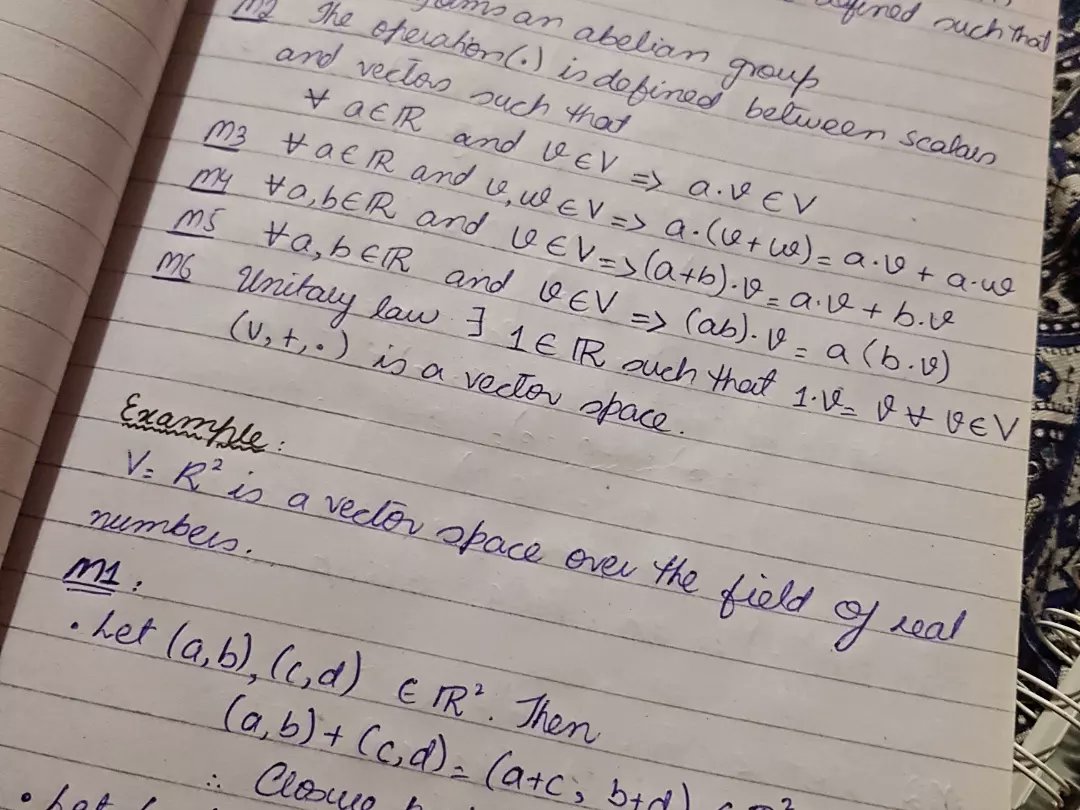 defined such that
forms an abelian group
M2 The operation (·) is defined between scalars
and vectors such that
∀ a ∈ ℝ and v ∈ V => a·v ∈ V
M3 ∀ a ∈ ℝ and v, w ∈ V => a·(v+w) = a·v + a·w
M4 ∀ a, b ∈ ℝ and v ∈ V => (a+b)·v = a·v + b·v
M5 ∀ a, b ∈ ℝ and v ∈ V => (ab)·v = a(b·v)
M6 Unitary law ∃ 1 ∈ ℝ such that 1·v = v ∀ v ∈ V
(V, +, ·) is a vector space.
Example:
V = R² is a vector space over the field of real
numbers.
M1:
• Let (a,b), (c,d) ∈ ℝ². Then
(a,b) + (c,d) = (a+c, b+d)
∴ Closure
• Let